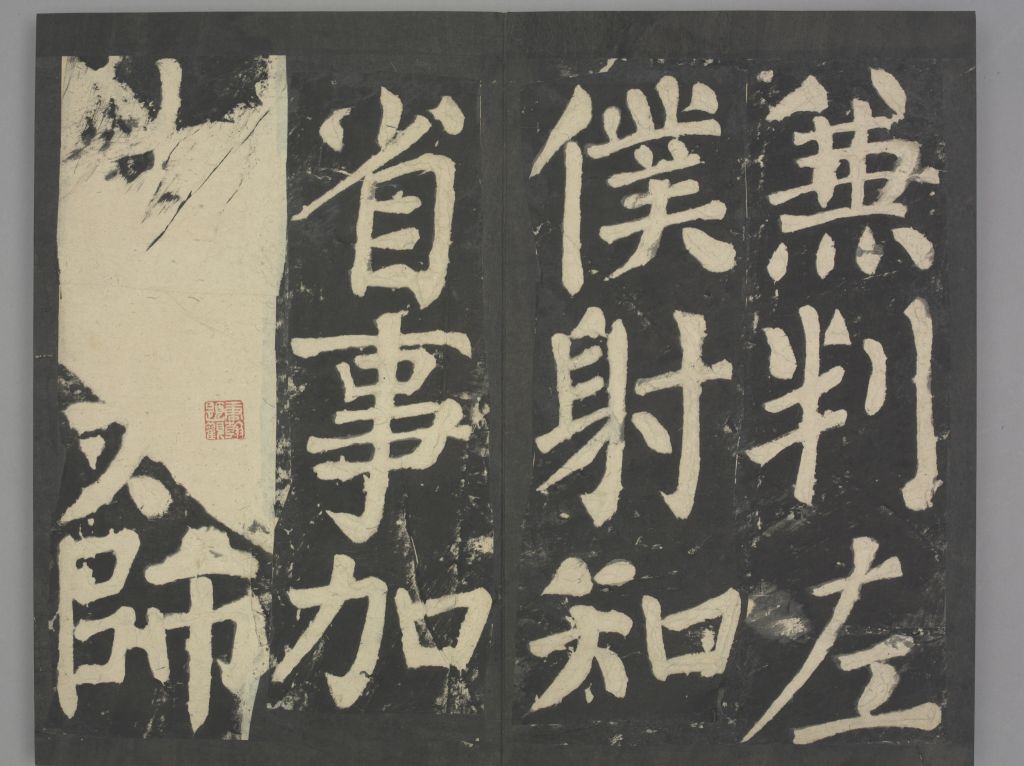 兼判左
僕射知
省事加
師